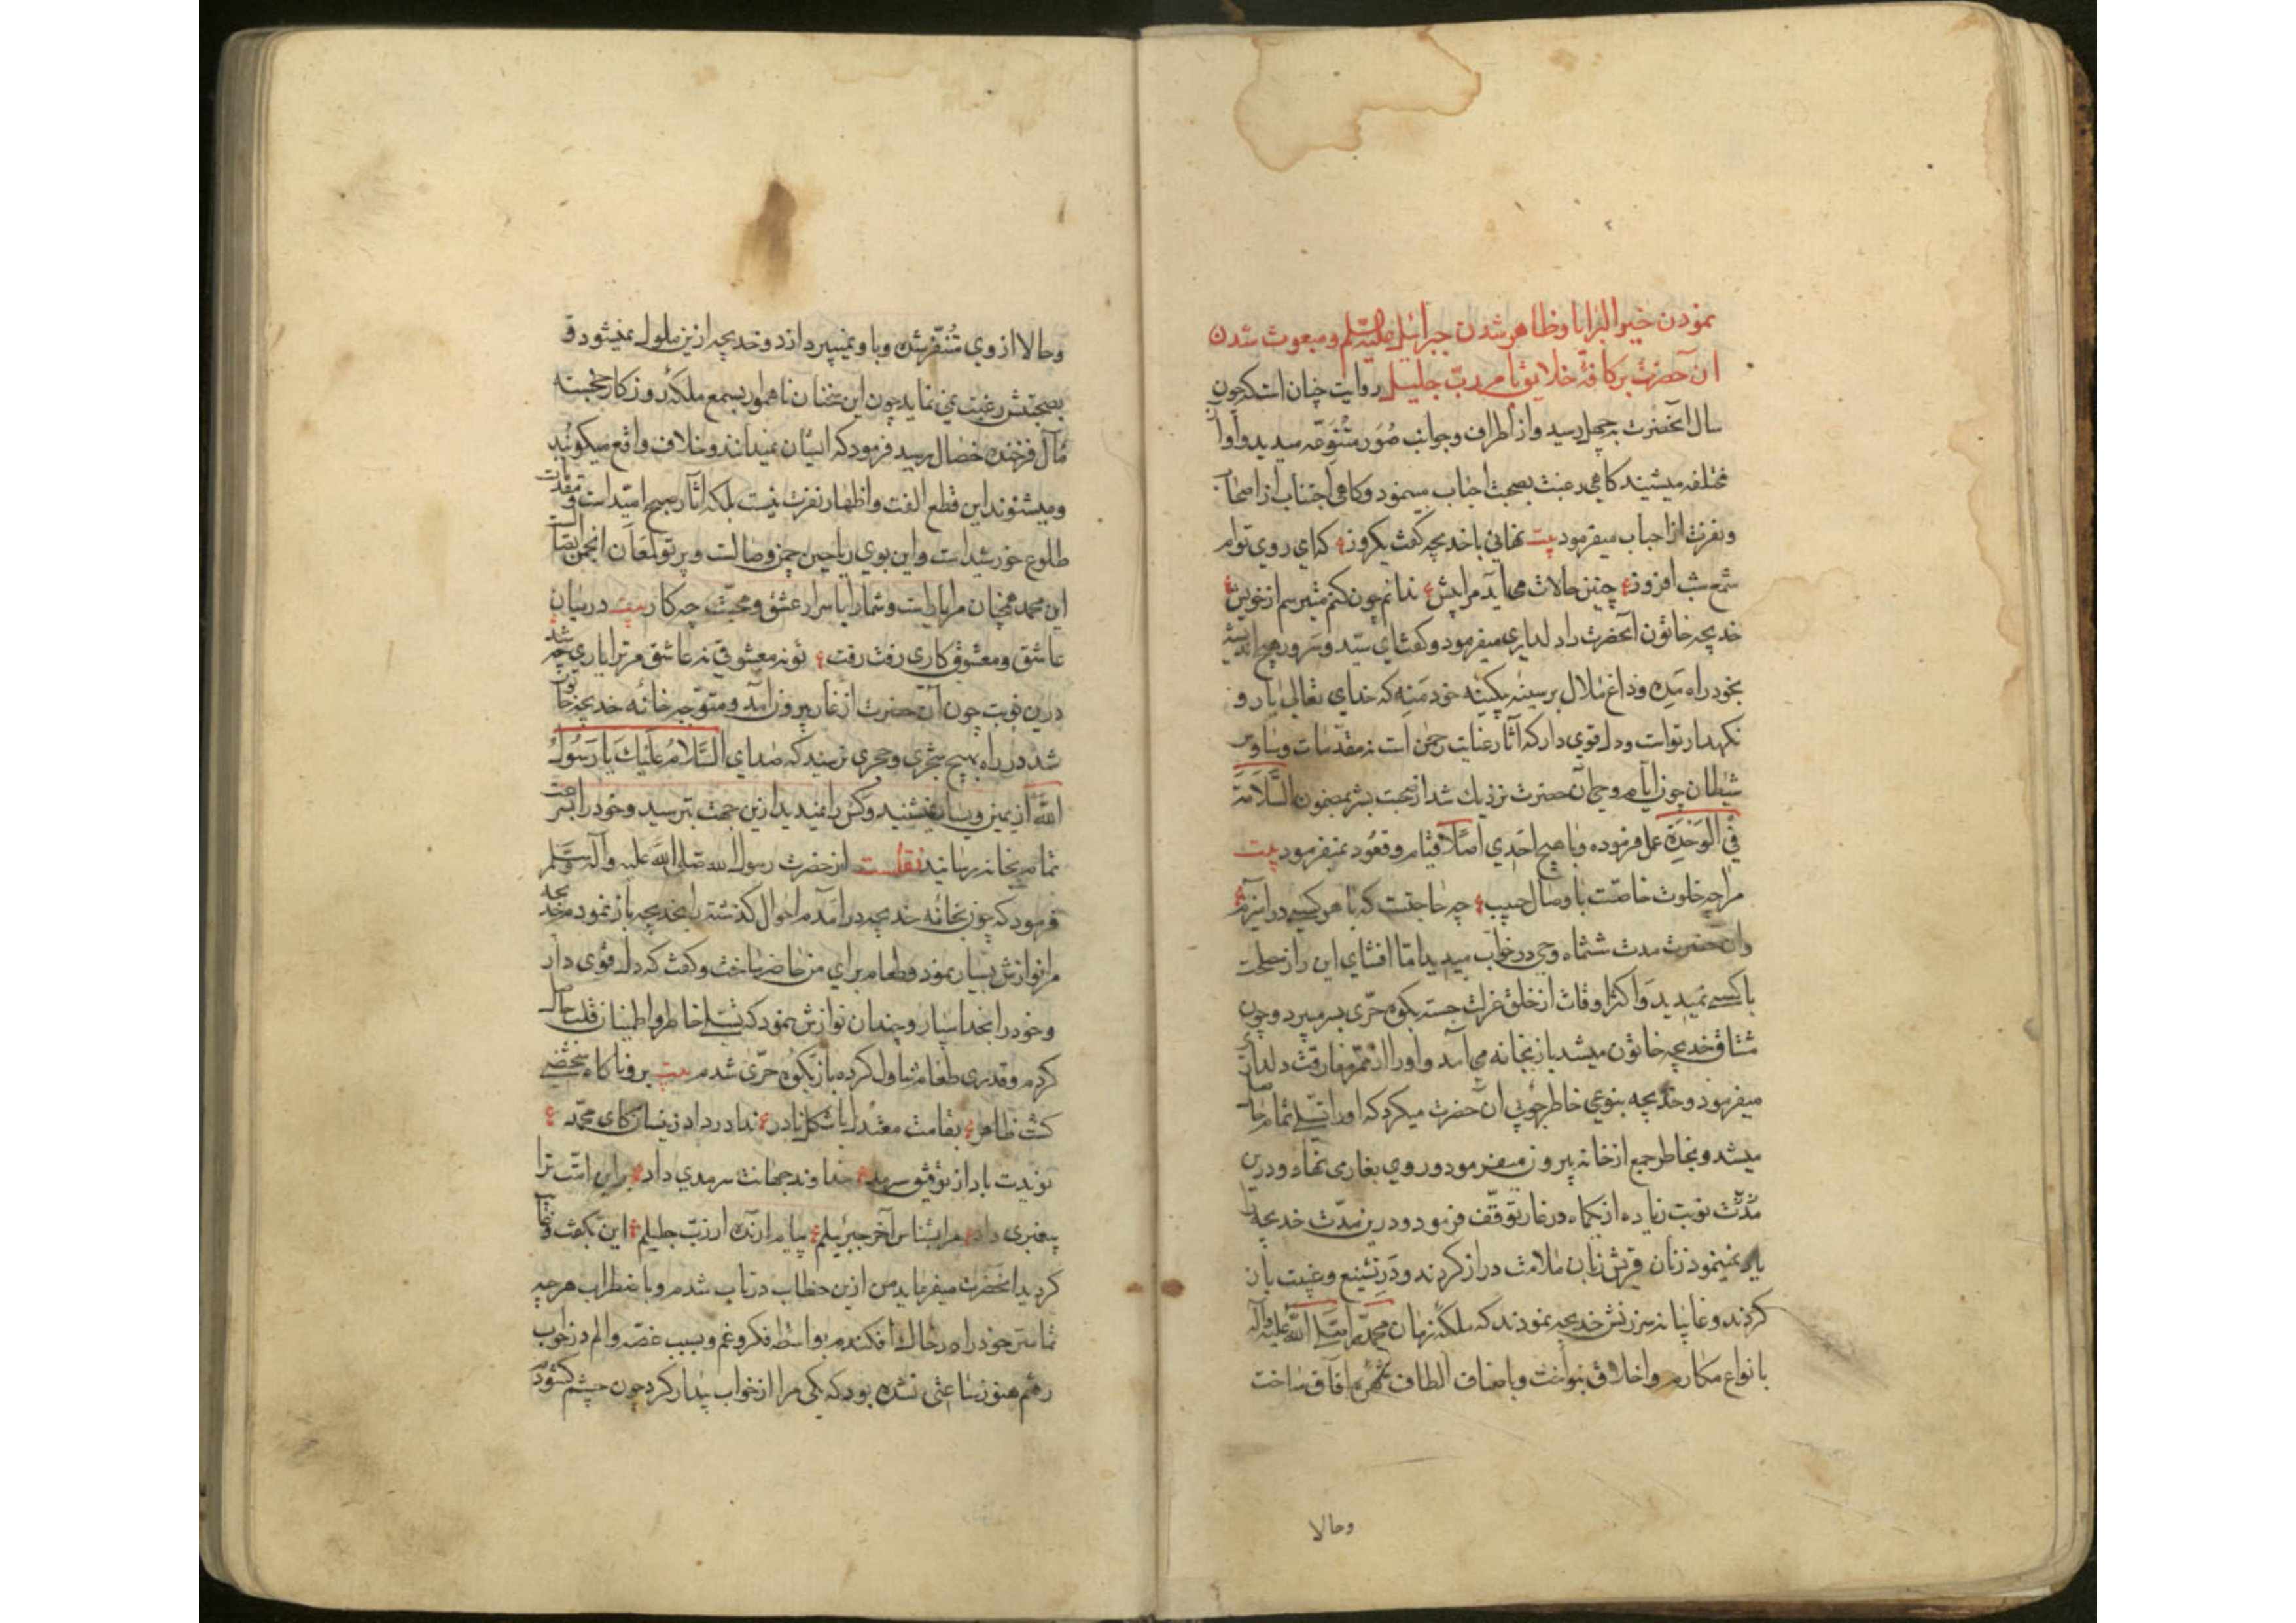 نمودن خیر البرایا و ظاهر شدن جبرائیل علیه السلم و مبعوث شدن
آن حضرت بر کافهٔ خلایق بامر ربّ جلیل روایت چنان است که چون
سال آنحضرت بچهل رسید و از اطراف و جوانب صُوَر متنوّعه میدید و آوا
مختلفه میشنید کاهی رغبت بصحبت احباب مینمود و کاهی اجتناب از اصحاب
و نفرت از احباب میفرمود بیت نهانی با خدیجه کفت یکروز که ای روی توام
شمع شب افروز چنین حالات می آید مرا پیش ندانم چون کنم میترسم از خویش
خدیجه خاتون آنحضرت را دلداری میفرمود و کفت ای سیّد و سرور هیچ اندیشه
بخود راه مده و داغ ملال بر سینه بیکینه خود منه که خدای تعالی یار و
نکهدار تواست و دل قوی دار که آثار عنایت رحمن است نه مقدمات وساوس
شیطان چون ایام وحی آن حضرت نزدیك شد از صحبت بشر بمضمون السَّلَامَة
فِی الوَحْدَةِ عمل فرموده و با هیچ احدی اصلا قیام و قعود نمیفرمود بیت
مرا چه خلوت خاصست با وصال حبیب چه حاجتست که با هر کسی در آمیزم
و آن حضرت مدت ششماه وحی در خواب میدید اما افشای این راز مصلحت
با کسی نمیدید و اکثر اوقات از خلق عزلت جسته بکوه حرّی بسر میبرد و چون
مشتاق خدیجه خاتون میشد باز بخانه می آمد و او را از غم مفارقت دلداری
میفرمود و خدیجه بنوعی خاطرجوئی آن حضرت میکرد که او را تسلی تمام حاصل
میشد و بخاطر جمع از خانه بیرون میفرمود و روی بغار می نهاد و درین
مُدّت نوبت زیاده از یکماه در غار توقّف فرمود و درین مدّت خدیجه را
یاد نمینمود زنان قریش زبان ملامت دراز کردند و در تشنیع و غیبت باز
کردند و غایبانه سرزنش خدیجه نمودند که ملکهٔ زمان محمّد را صلی الله علیه وآله
با نواع مکارم و اخلاق بنواخت و باصناف الطاف شهرهٔ آفاق ساخت
وحالا
وحالا از وی مُتنفّر شده و با و نمیپردازد و خدیجه ازین ملول نمیشود و
بصحبتش رغبت نمی نماید چون این سخنان ناهموار بسمع ملکهٔ روزکار خجسته
مآل فرخنده خصال رسید فرمود که ایشان نمیدانند و خلاف واقع میکویند
و میشنوند این قطع الفت و اظهار نفرت نیست بلکه آثار صبح امیّد است و مقدمات
طلوع خورشید است و این بوی ریاحین چمن وصالست و پرتو لمعان انجمن
این محمد همچنان مرا یار است و شما را با سرار عشق و محبّت چه کار بیت در میان
عاشق و معشوق کاری رفت رفت تو نه معشوقی نه عاشق مر ترا باری چه شد
درین نوبت چون آن حضرت از غار بیرون آمد و متوجه خانهٔ خدیجه خاتون
شد در راه بهیچ شجری و حجری نرسید که صدای السَّلامُ عَلَیْكَ یا رَسُولُ
اللهِ از یمین و یسار نشنید و کس را نمیدید ازین جهت بترسید و خود را بسرعت
تمام بخانه رسانید نقلست از حضرت رسول الله صلی الله علیه وآله وسلّم
فرمود که چون بخانهٔ خدیجه در آمدم احوال کذشته را بخدیجه باز نمودم خدیجه
مرا نوازش بسیار نمود و طعام برای من حاضر ساخت و کفت که دل قوی دار
و خود را بخدا سپار و چندان نوازش نمود که تسلی خاطر و اطمینان قلب حاصل
کردم و قدری طعام تناول کرده باز بکوه حرّی شدم بیت برو ناکاه شخصی
کشت ظاهر بقامت معتدل با شکل نادر ندا در داد زینسان کای محمّد
نویدت باد از توفیق سرمد خداوند جهانت سرمدی داد برین امّت ترا
پیغمبری داد مرا بشناس آخر جبرئیلم پیام آرنده از ربّ جلیلم این بکفت و غایب
کردید آنحضرت میفرماید من ازین خطاب در تاب شدم و با ضطراب هر چه
تمامتر خود را در خاك افکندم بواسطه فکر و غم و بسبب غصّه و الم در خواب
رفتم هنوز ساعتی نشده بود که یکی مرا از خواب بیدار کرد چون چشم کشودم